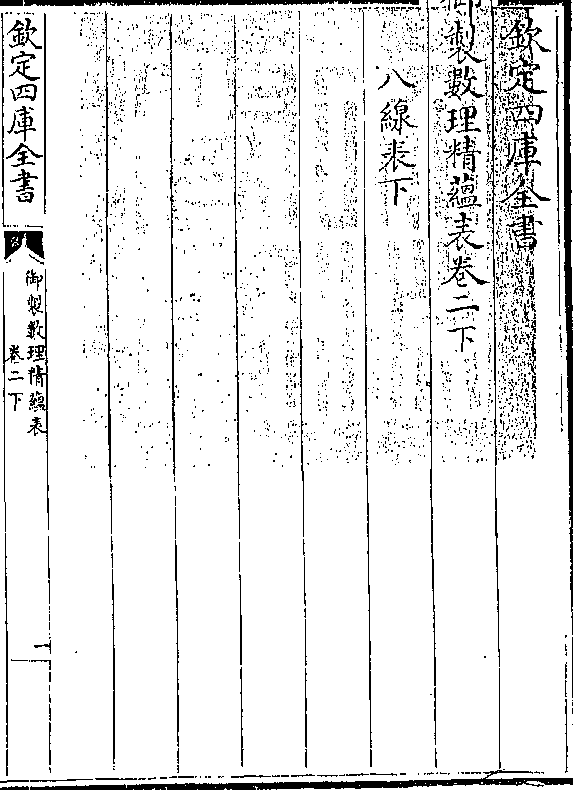 欽定四庫全書
御製數理精蘊表卷二下
八線表下
欽定四庫全書
御製數理精蘊表
卷二下
一